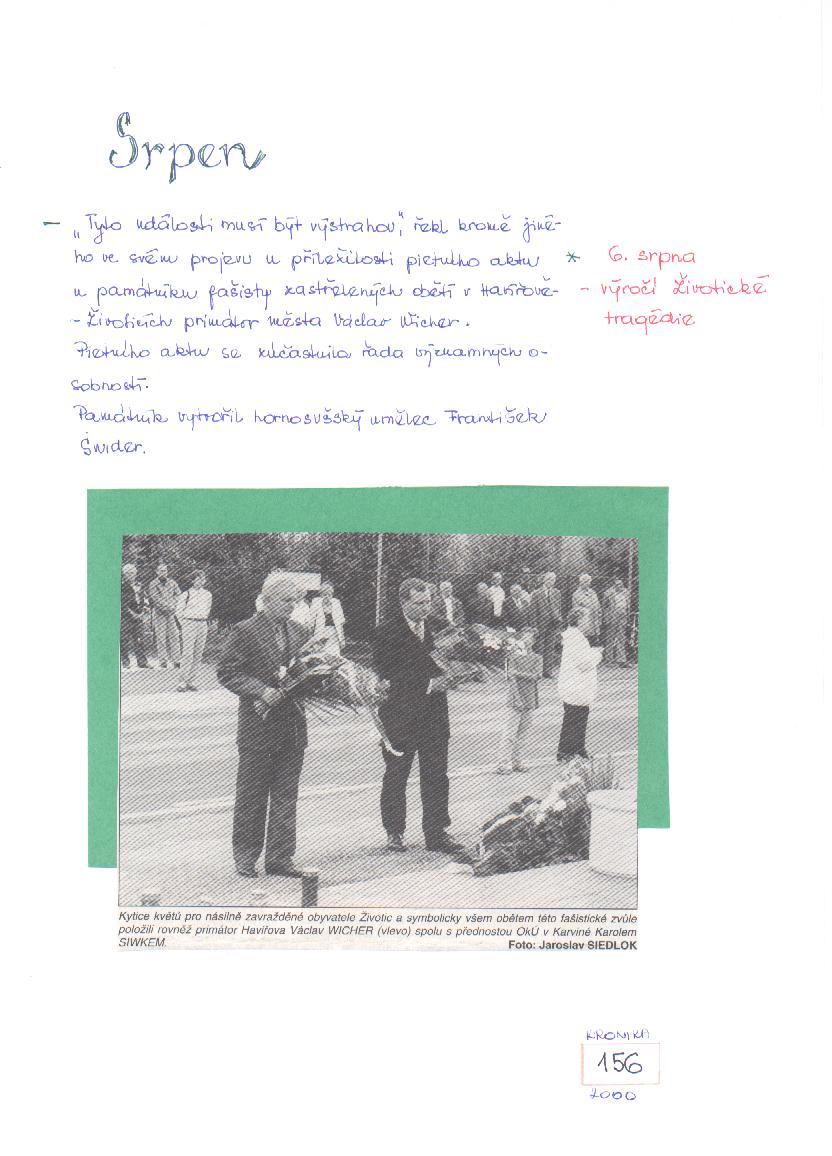 Srpen
– „Tyto události musí být výstrahou“, řekl kromě jiné-
ho ve svém projevu u příležitosti pietního aktu
u památníku fašisty zastřelených obětí v Havířově-
- Životicích primátor města Václav Wicher.
Pietního aktu se zúčastnila řada významných o-
sobností.
Památník vytvořil hornosušský umělec František
Świder.
* 6. srpna
- výročí Životické
tragédie
Kytice květů pro násilně zavražděné obyvatele Životic a symbolicky všem obětem této fašistické zvůle
položili rovněž primátor Havířova Václav WICHER (vlevo) spolu s přednostou OkÚ v Karviné Karolem
SIWKEM. Foto: Jaroslav SIEDLOK
KRONIKA
156
2000